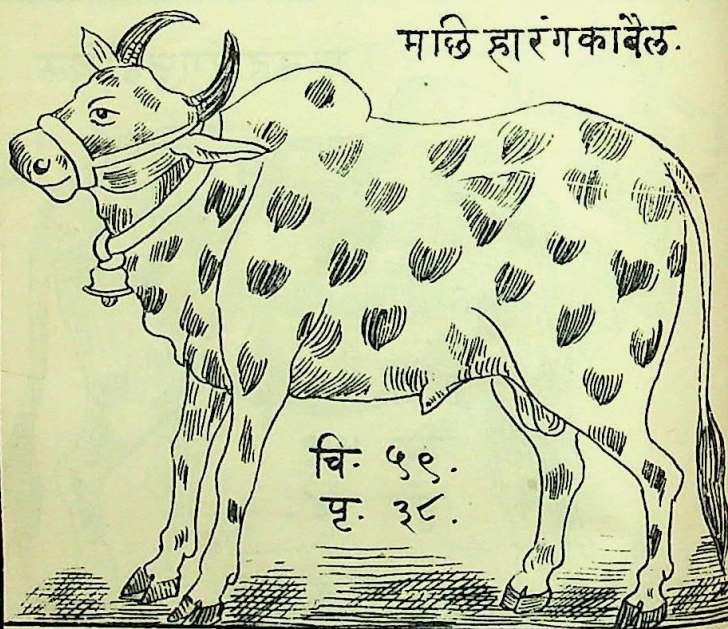 मछि हा रंग का बैल.
चि. ५९.
पृ. ३८.